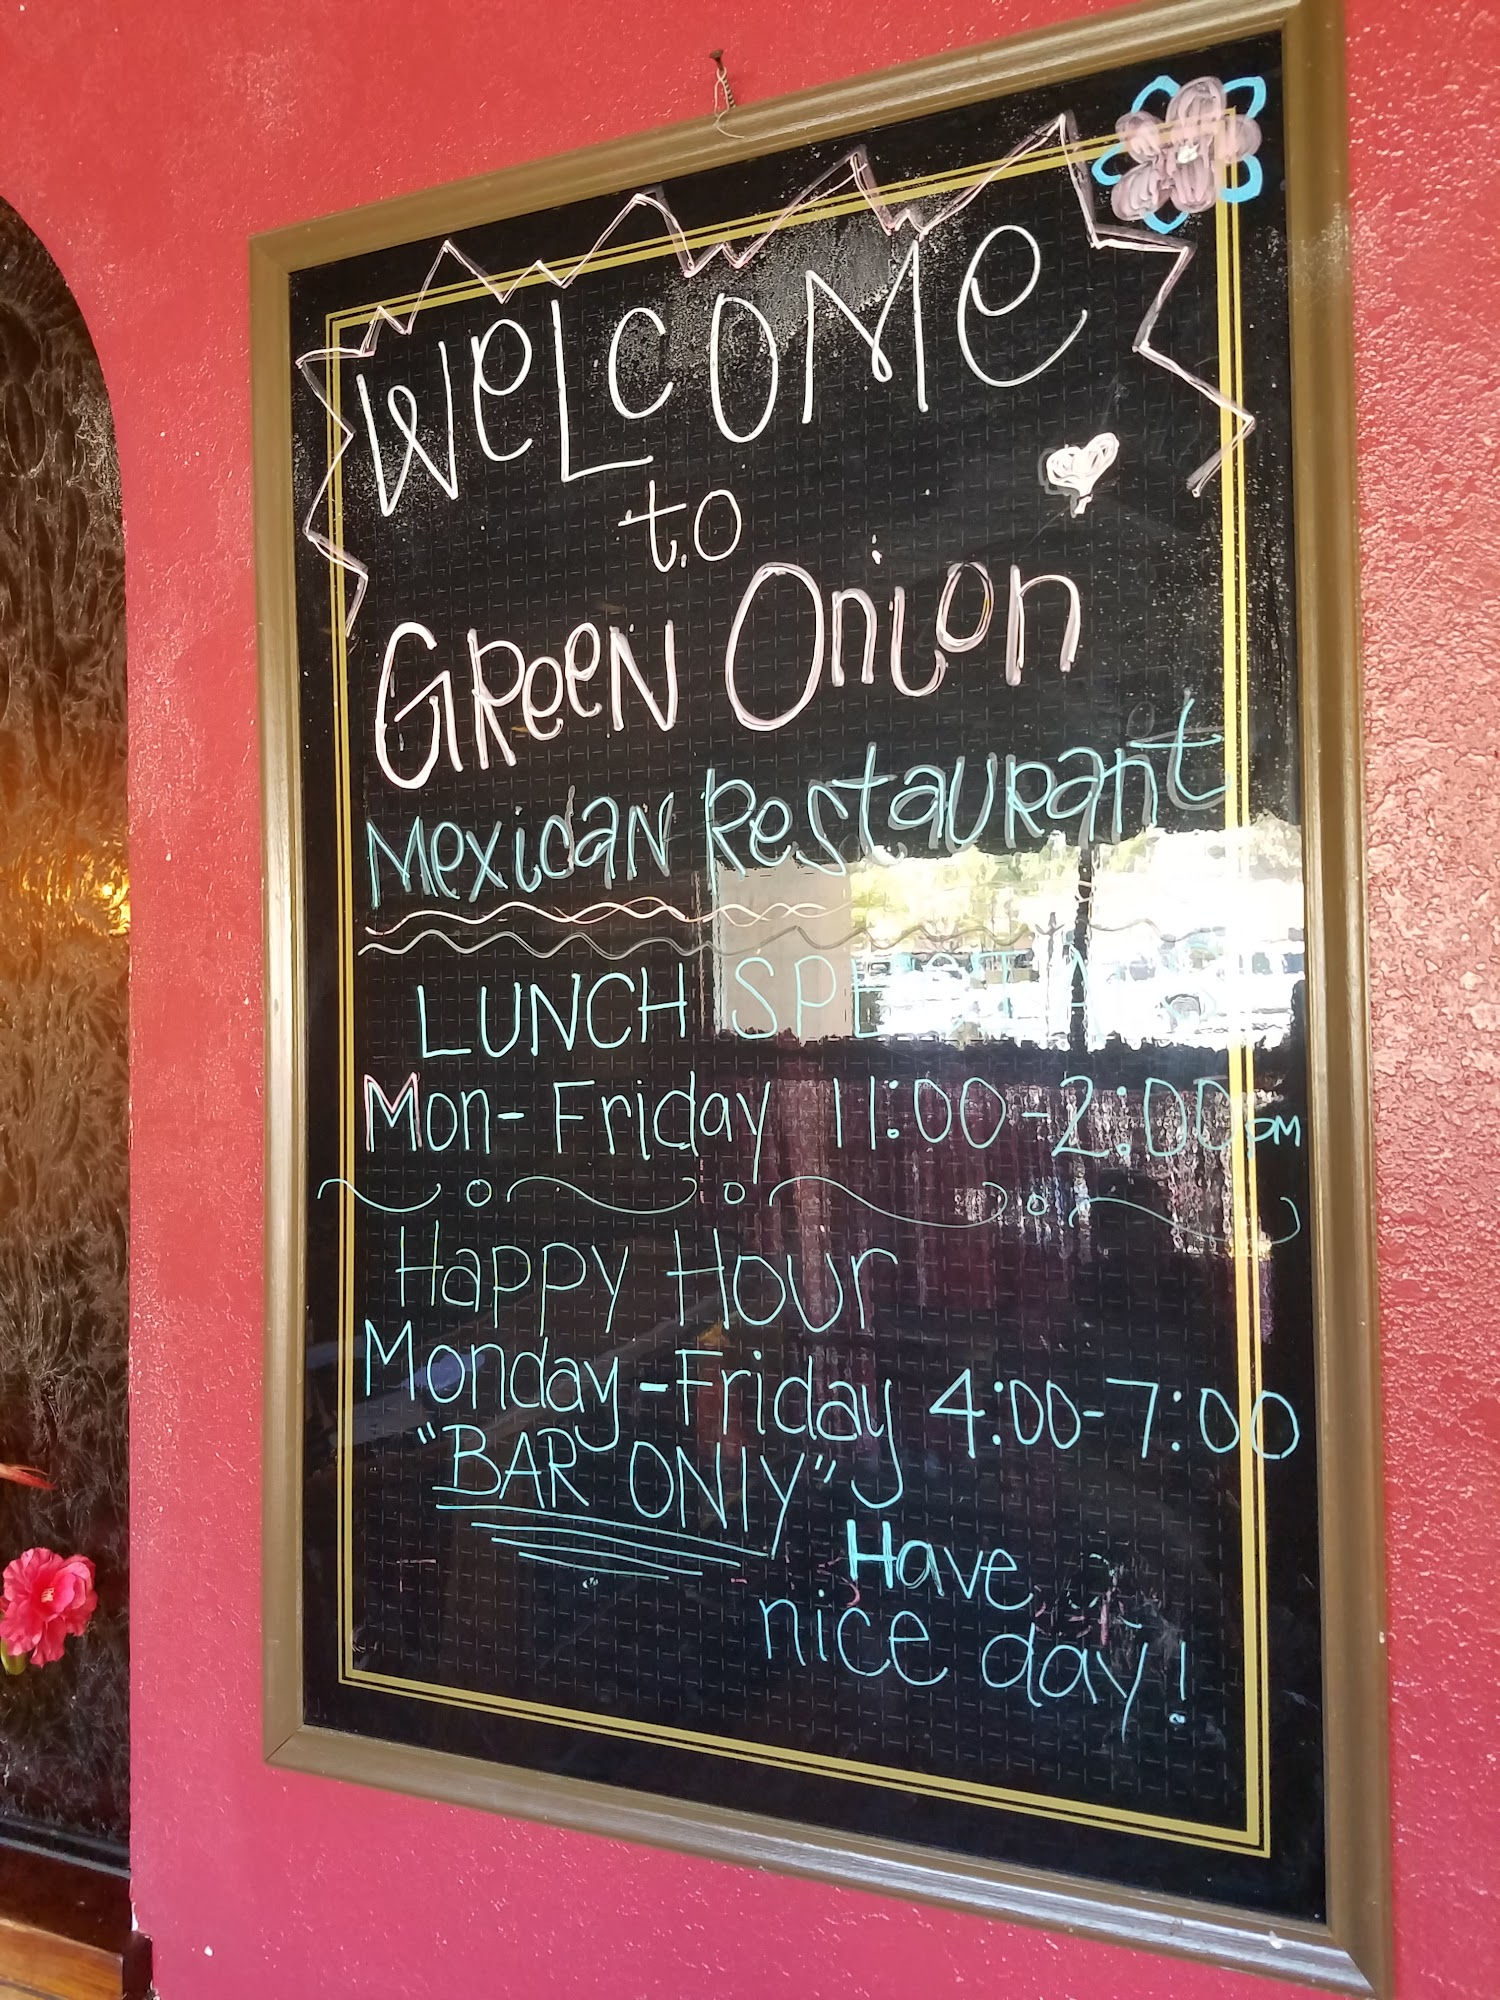 WeLCOMe
to
GReeN Onion
MexicaN RestauRant
LUNCH SPECIALS
Mon-Friday 11:00-2:00PM
Happy Hour
Monday-Friday 4:00-7:00
"BAR ONly"
Have
nice day!